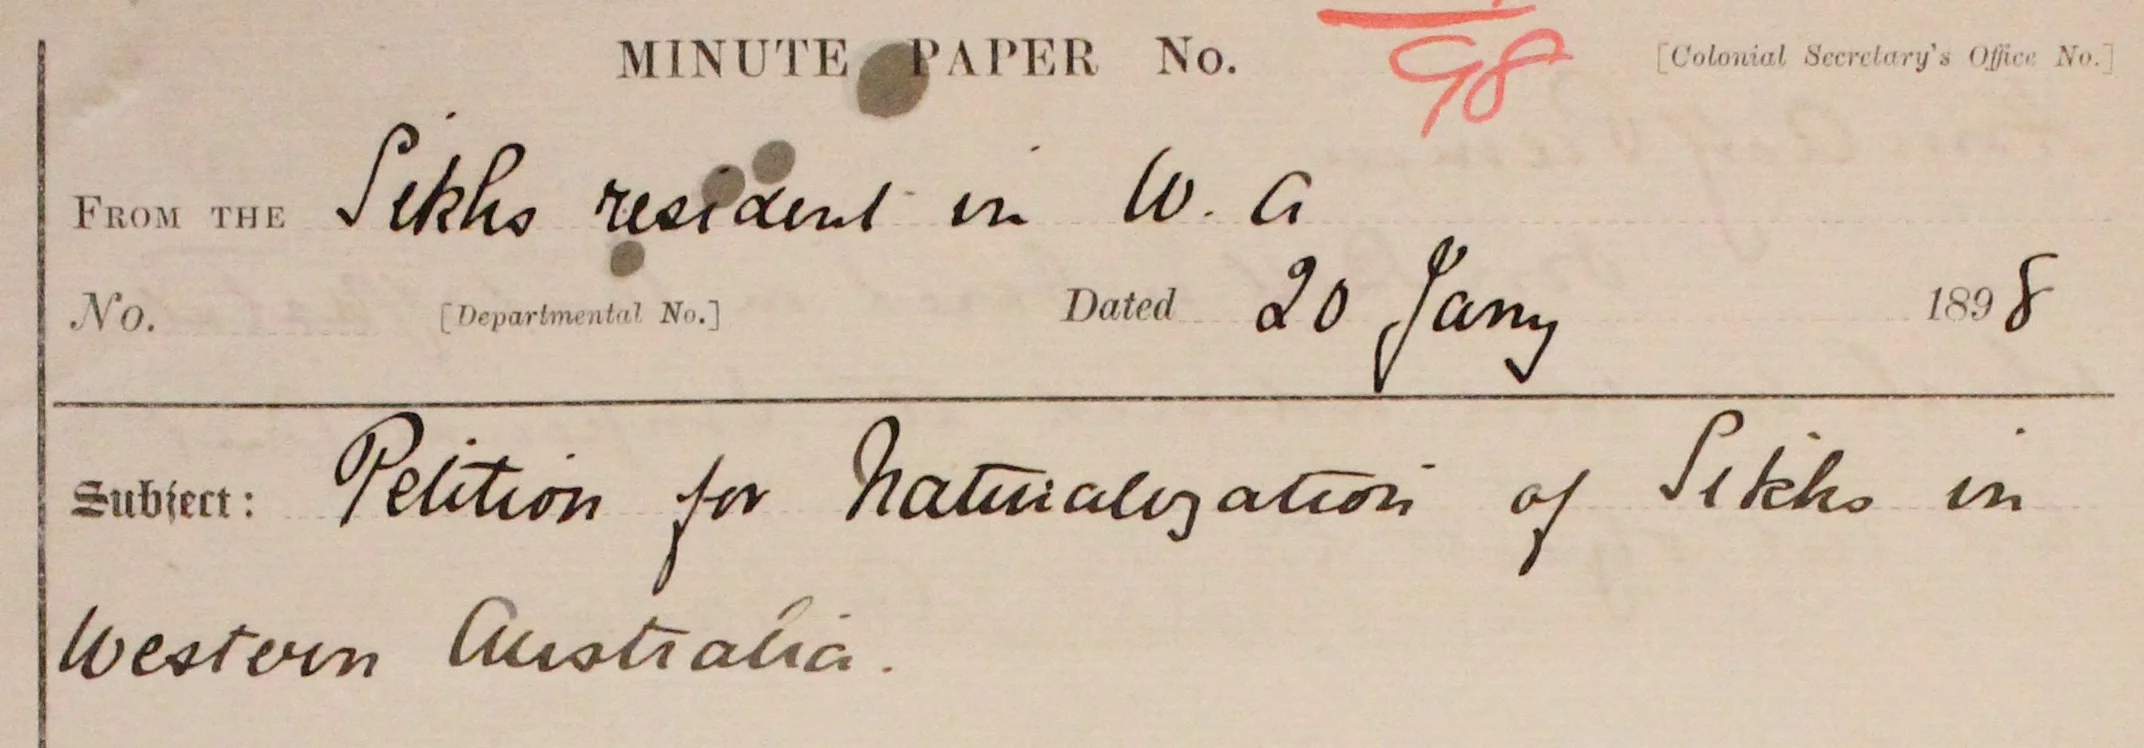 MINUTE PAPER No. 98 [Colonial Secretary's Office No.]
FROM THE Sikhs resident in W. A
No. [Departmental No.] Dated 20 Jany 1898
Subject: Petition for Naturalization of Sikhs in
Western Australia.